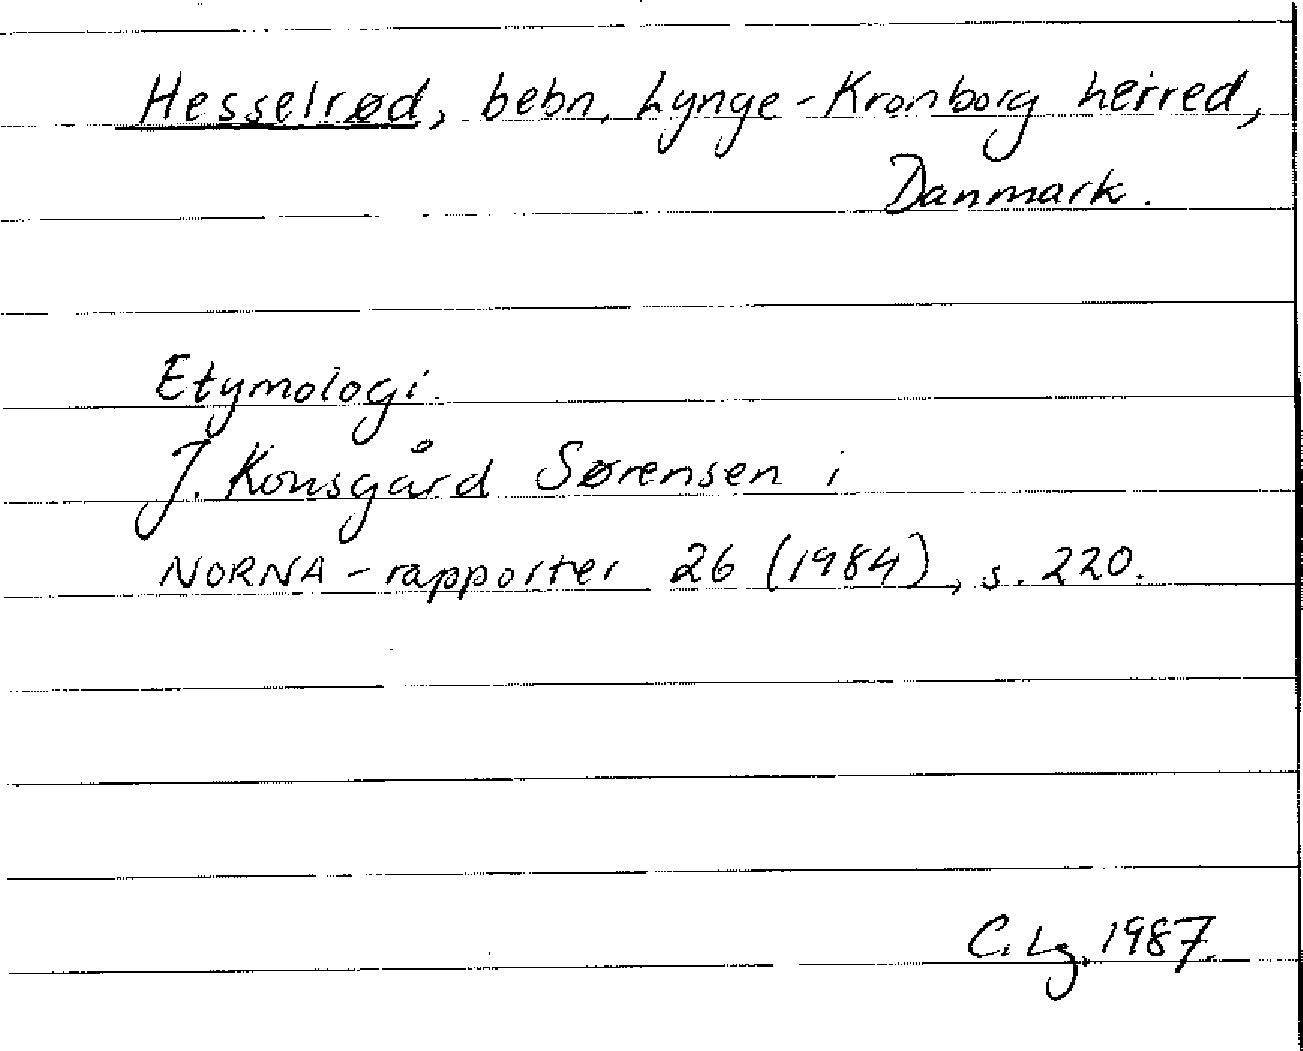 Hesselrød, bebn, Lynge-Kronborg herred,
Danmark.
Etymologi.
J. Kousgård Sørensen i
NORNA-rapporter 26 (1984), s. 220.
C. Lg. 1987.